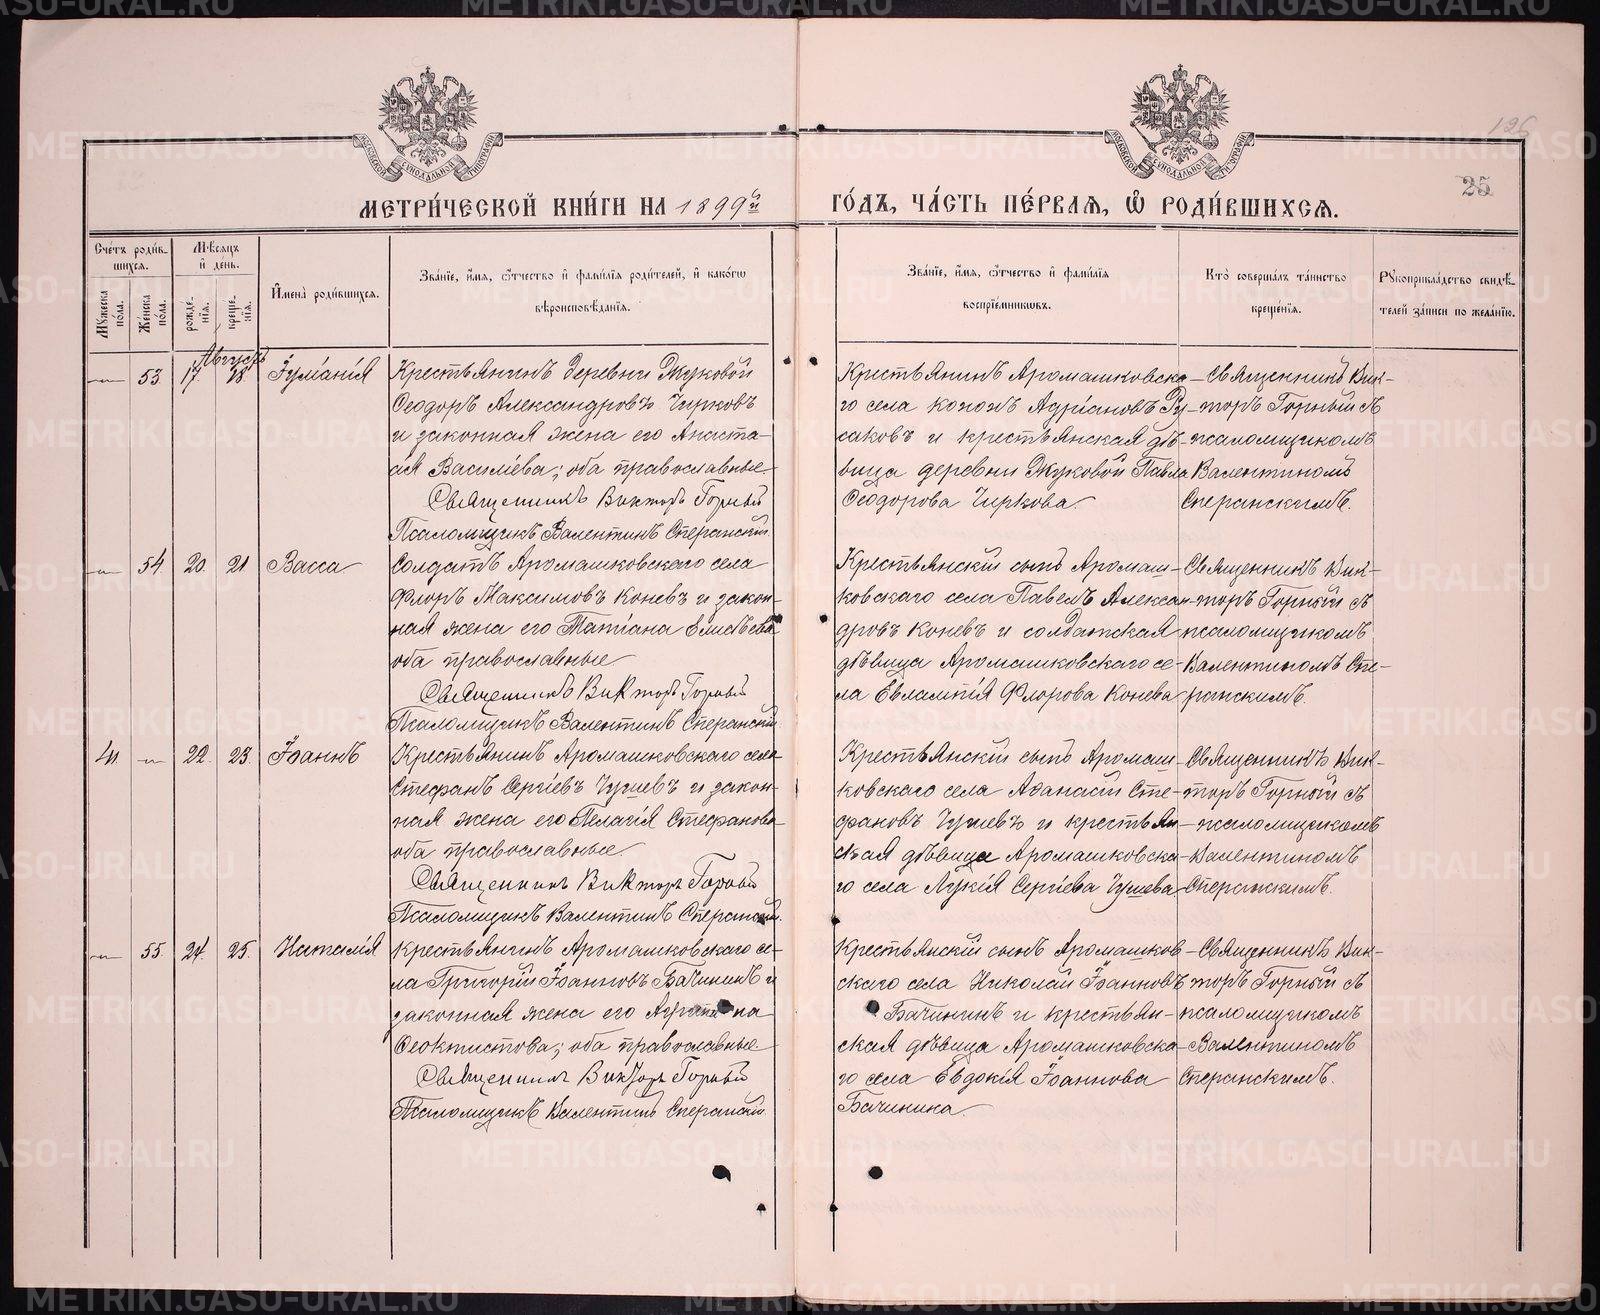 126
25
МЕТРИ́ЧЕСКОЙ КНИ́ГИ НА 1899й ГО́ДЪ, ЧА́СТЬ ПЕ́РВАЯ, Ѡ РОДИ́ВШИХСЯ.
Сче́тъ роди́в-
шихся.
Мꙋ́жеска по́ла.
Же́нска по́ла.
Мѣ́сяцъ и де́нь.
рожде́-
нїя.
креще́-
нїя.
И҆мена̀ роди́вшихся.
Зва́нїе, и҆́мя, ѻ҆́тчество и҆ фамі́лїя роди́телей, и҆ како́гѡ
вѣроисповѣ́данїя.
Зва́нїе, и҆́мя, ѻ҆́тчество и҆ фамі́лїя
воспрїе́мникѡвъ.
Кто̀ соверша́лъ та́инство
креще́нїя.
Рꙋкоприкла́дство свидѣ́-
телей за́писи по жела́нїю.
Августъ
53. 17. 18. Іуліанія
Крестьянинъ деревни Жуковой
Ѳеодоръ Александровъ Чирковъ
и законная жена его Анаста-
ія Васильева; оба православные
Священникъ Викторъ Горный
Псаломщикъ Валентинъ Сперанскій.
Крестьянинъ Аромашковска-
го села Кононъ Адріановъ Ру-
саковъ и крестьянская дѣ-
вица деревни Жуковой Павла
Ѳеодорова Чиркова.
Священникъ Вик-
торъ Горный съ
псаломщикомъ
Валентиномъ
Сперанскимъ.
54. 20. 21. Васса
Солдатъ Аромашковскаго села
Флоръ Максимовъ Коневъ и закон-
ная жена его Татіана Елисѣева
оба православные
Священникъ Викторъ Горный
Псаломщикъ Валентинъ Сперанскій
Крестьянскій сынъ Аромаш-
ковскаго села Павелъ Алексан-
дровъ Коневъ и солдатская
дѣвица Аромашковскаго се-
ла Евлампія Флорова Конева
Священникъ Вик-
торъ Горный съ
псаломщикомъ
Валентиномъ Спе-
ранскимъ.
41. 22. 23. Іоаннъ
Крестьянинъ Аромашковскаго села
Стефанъ Сергіевъ Чушевъ и закон-
ная жена его Пелагія Стефанова
оба православные.
Священникъ Викторъ Горный
Псаломщикъ Валентинъ Сперанскій.
Крестьянскій сынъ Аромаш-
ковскаго села Аѳанасій Сте-
фановъ Чушевъ и крестьян-
ская дѣвица Аромашковска-
го села Лукія Сергіева Чушева.
Священникъ Вик-
торъ Горный съ
псаломщикомъ
Валентиномъ
Сперанскимъ.
55. 24. 25. Наталія
Крестьянинъ Аромашковскаго се-
ла Григорій Іоанновъ Бачининъ и
законная жена его
Ѳеоктистова; оба православные
Священникъ Викторъ Горный
Псаломщикъ Валентинъ Сперанскій.
Крестьянскій сынъ Аромашков-
скаго села Николай Іоанновъ
Бачининъ и крестьян-
ская дѣвица Аромашковска-
го села Евдокія Іоаннова
Бачинина
Священникъ Вик-
торъ Горный съ
псаломщикомъ
Валентиномъ
Сперанскимъ.
METRIKI.GASO-URAL.RU